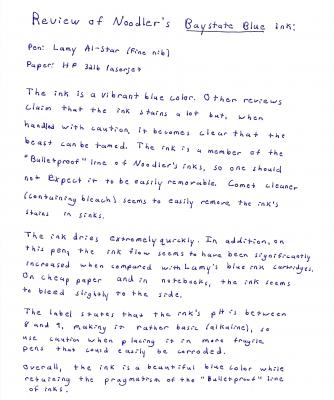 Review of Noodler's Baystate Blue ink:
Pen: Lamy Al-Star (fine nib)
Paper: HP 32lb laserjet
The ink is a vibrant blue color. Other reviews
claim that the ink stains a lot but, when
handled with caution, it becomes clear that the
beast can be tamed. The ink is a member of the
"Bulletproof" line of Noodler's inks, so one should
not expect it to be easily removable. Comet cleaner
(containing bleach) seems to easily remove the ink's
stains in sinks.
The ink dries extremely quickly. In addition, on
this pen, the ink flow seems to have been significantly
increased when compared with Lamy's blue ink cartridges.
On cheap paper and in notebooks, the ink seems
to bleed slightly to the side.
The label states that the ink's pH is between
8 and 9, making it rather basic (alkaline), so
use caution when placing it in more fragile
pens that could easily be corroded.
Overall, the ink is a beautiful blue color while
retaining the pragmatism of the "Bulletproof" line
of inks.